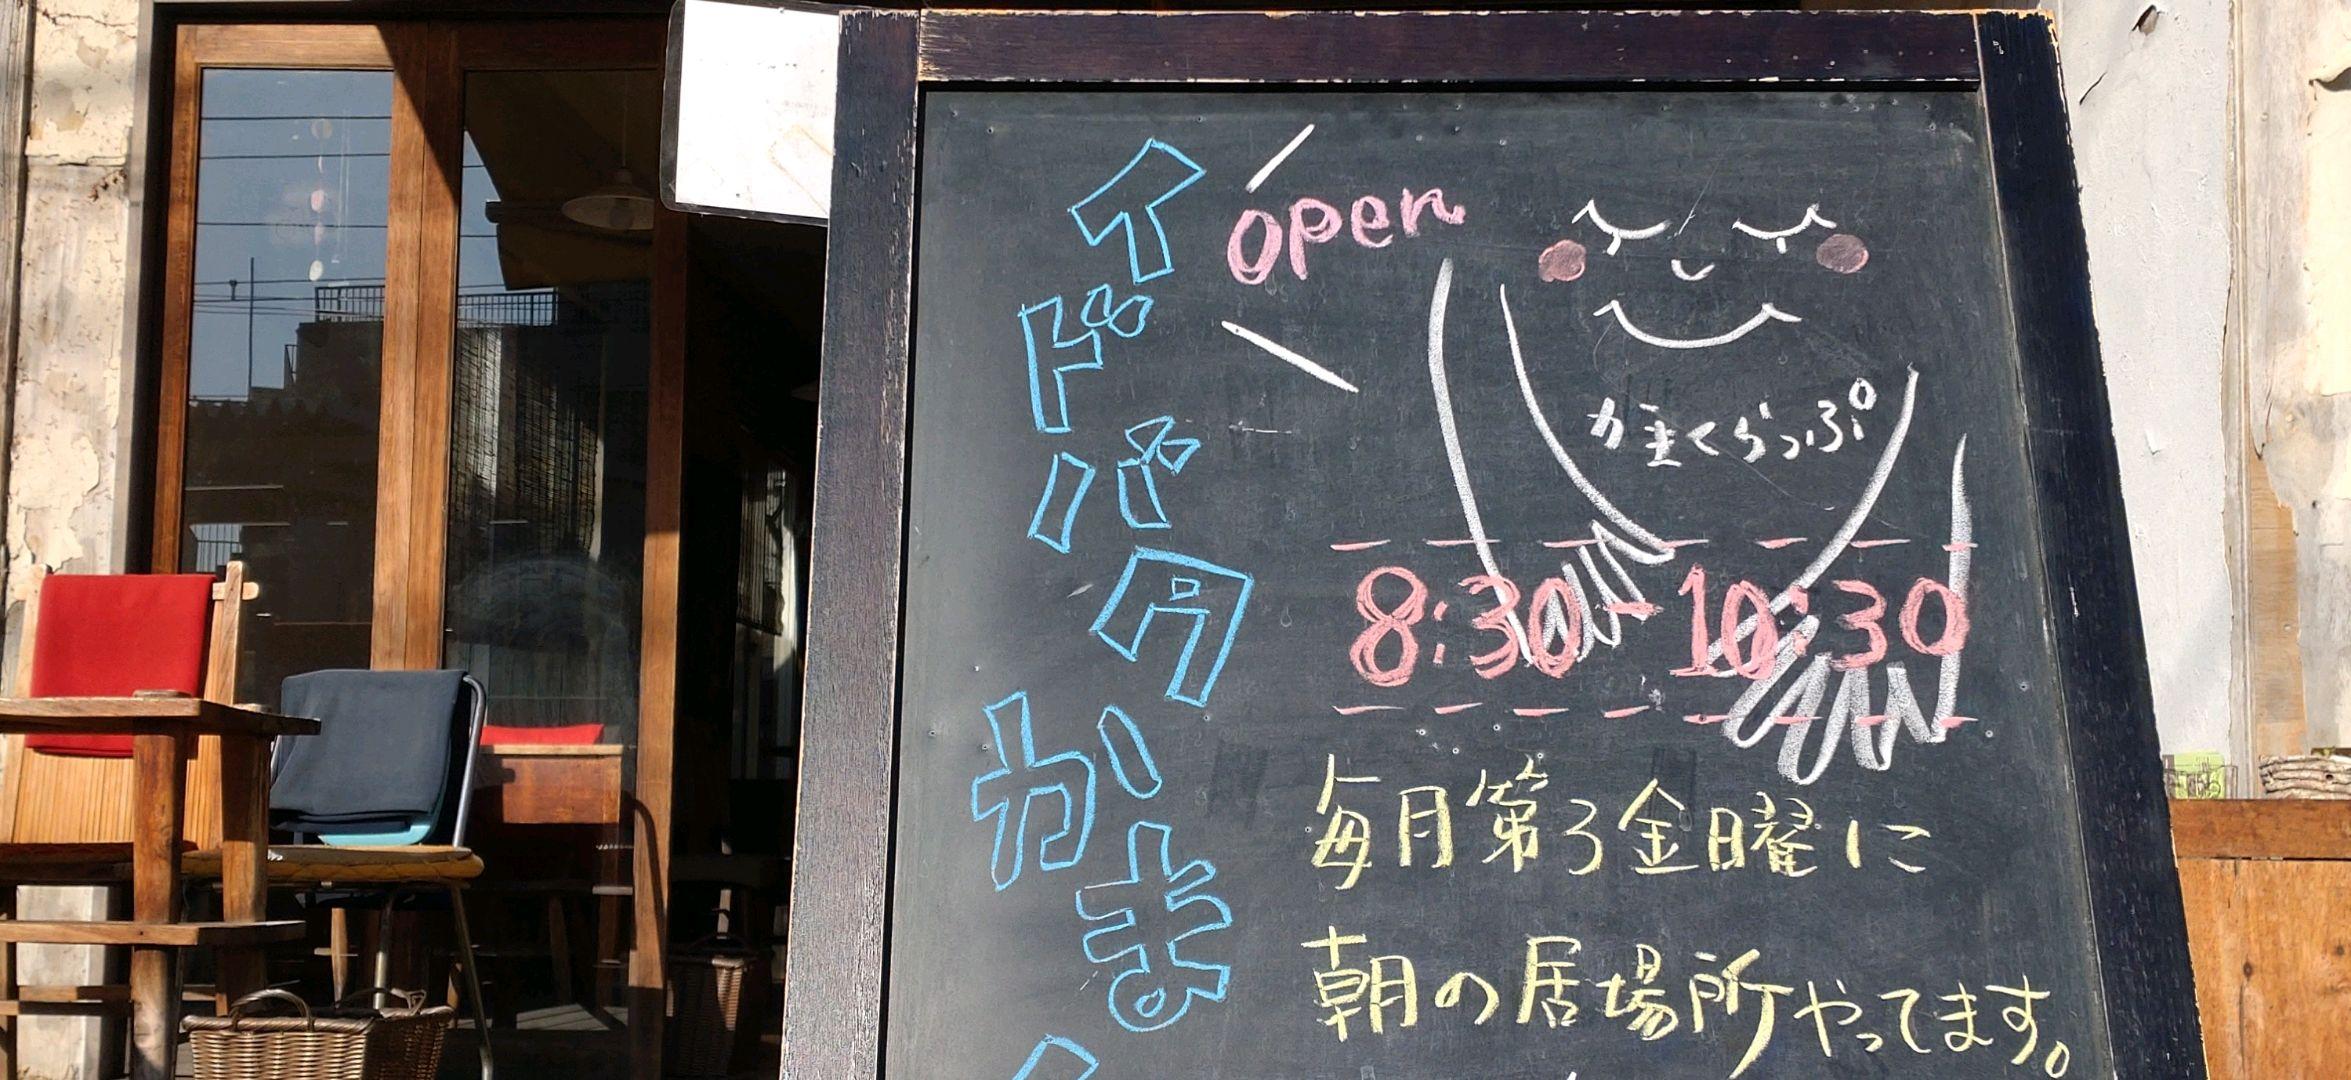 イドバタ
かま
open
かまくらっぷ
8:30-10:30
毎月第3金曜に
朝の居場所やってます。